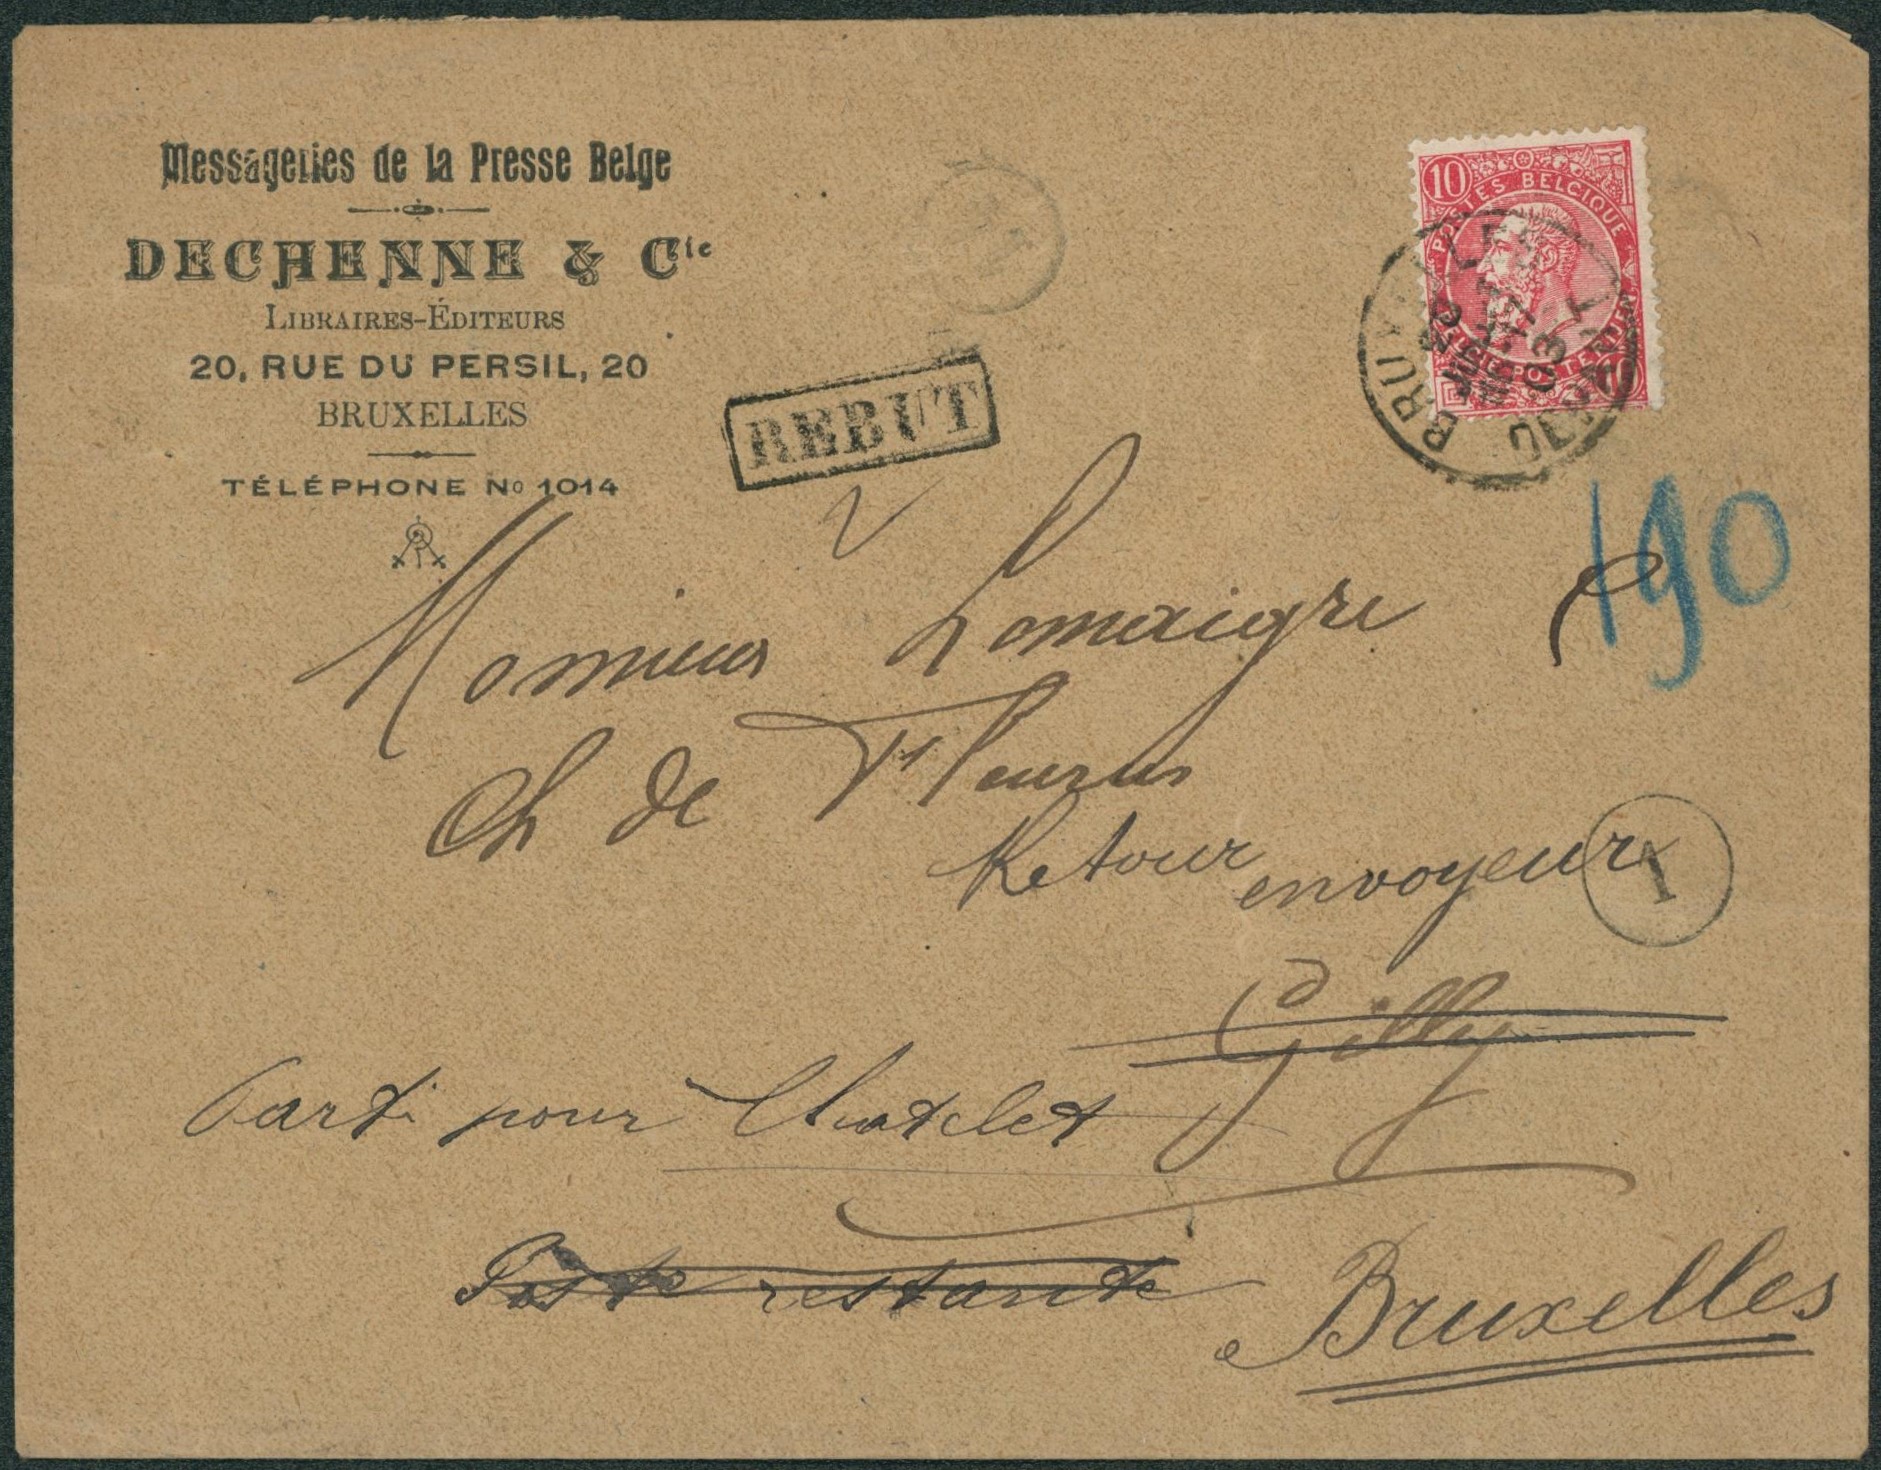 Messageries de la Presse Belge
DECHENNE & Cie
LIBRAIRES-ÉDITEURS
20, RUE DU PERSIL, 20
BRUXELLES
TÉLÉPHONE No 1014
REBUT
10
POSTES BELGIQUE
BELGIË POSTERIJEN
10
BRUXELLES
190
Monsieur Lomaigre
Ch de Fleurus
Retour envoyeur
1
Gilly
Parti pour Chatelet
Poste restante
Bruxelles